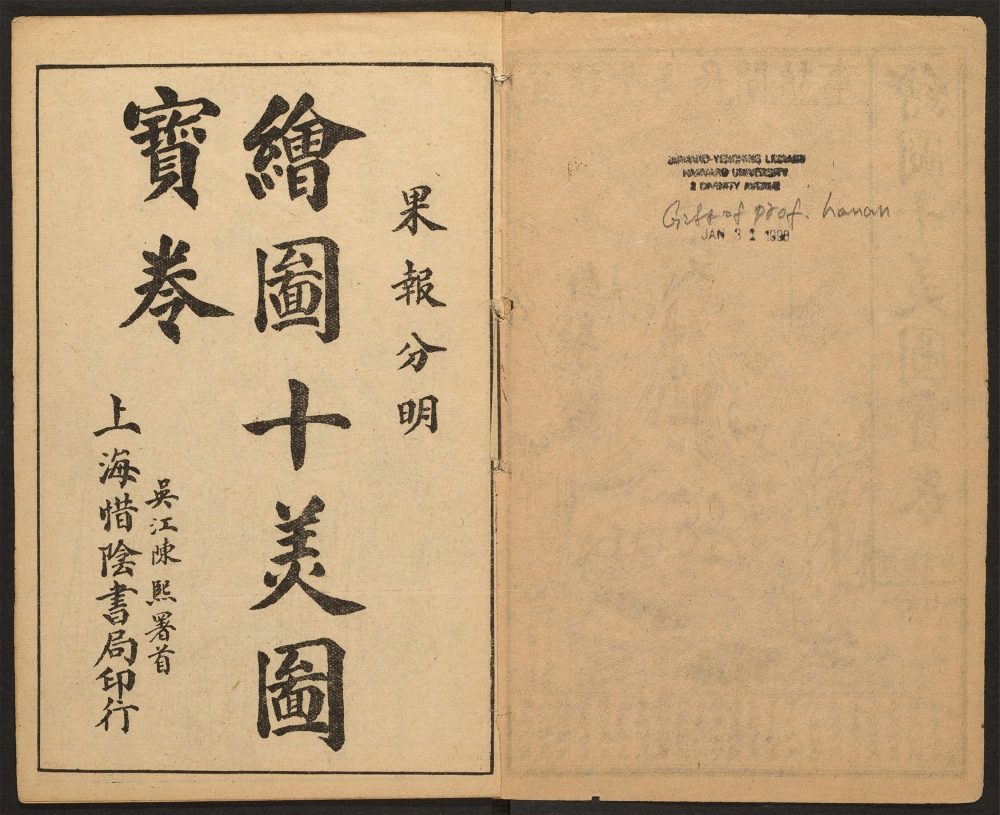 果報分明
繪圖十美圖
寶卷
吳江陳熙署首
上海惜陰書局印行
HARVARD-YENCHING LIBRARY
HARVARD UNIVERSITY
2 DIVINITY AVENUE
Gift of Prof. Hanan
JAN 31 1998